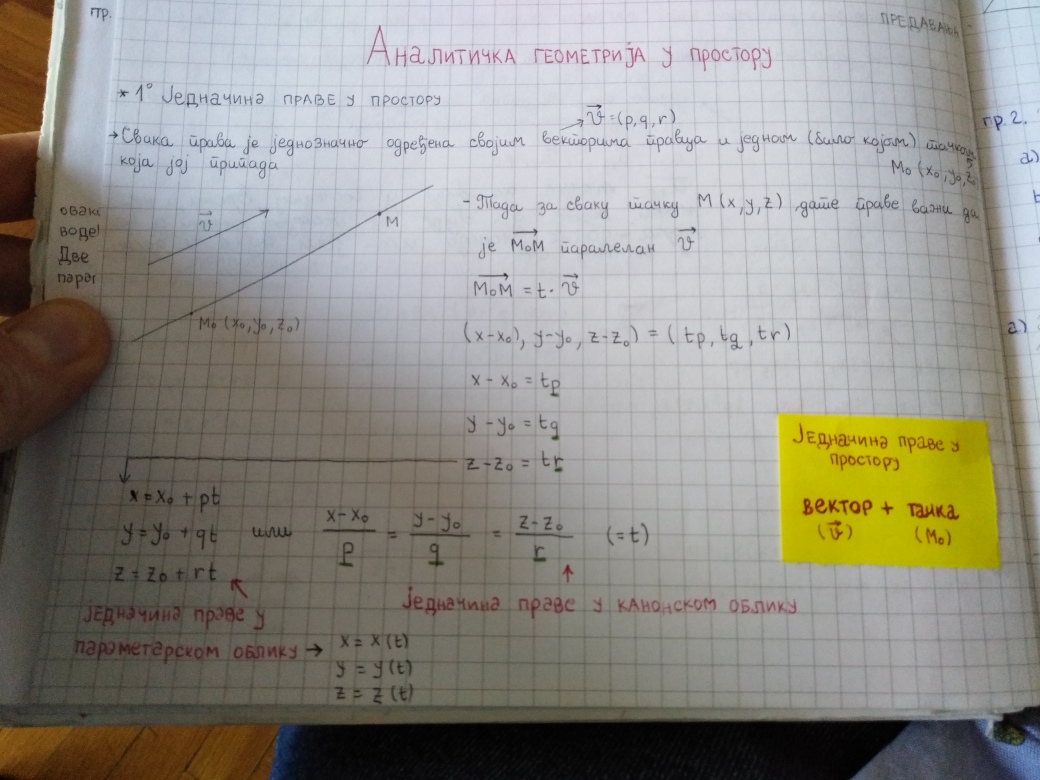 пр.
ПРЕДАВАЊА
Аналитичка геометрија у простору
* 1° Једначина праве у простору
v = (p, q, r)
→ Свака права је једнозначно одређена својим векторима правца и једном (било којом) тачком
која јој припада
M₀ (x₀, y₀, z₀
- Тада за сваку тачку M (x, y, z), дате праве важи да
је M₀M паралелан v
M₀M = t · v
(x-x₀), y-y₀, z-z₀) = (tp, tq, tr)
x - x₀ = tp
y - y₀ = tq
z - z₀ = tr
v
M
M₀ (x₀, y₀, z₀)
x = x₀ + pt
y = y₀ + qt
z = z₀ + rt
или
x-x₀/p = y-y₀/q = z-z₀/r (=t)
Једначина праве у
параметарском облику →
Једначина праве у канонском облику
x = x(t)
y = y(t)
z = z(t)
Једначина праве у
простору
вектор + тачка
(v) (M₀)
воде
Две
пр.2.
а)
а)